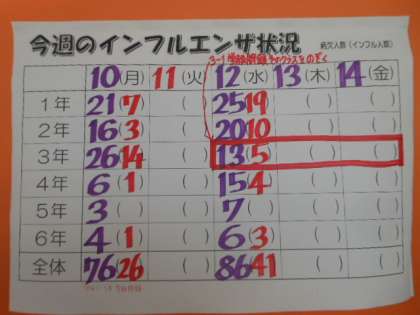 今週のインフルエンザ状況 病欠人数(インフル人数)
10(月) 11(火) 12(水) 13(木) 14(金)
1年 21(7) ( ) 25(19) ( ) ( )
2年 16(3) ( ) 20(10) ( ) ( )
3年 26(14) ( ) 13(5) ( ) ( )
4年 6(1) ( ) 15(4) ( ) ( )
5年 3( ) ( ) 7( ) ( ) ( )
6年 4(1) ( ) 6(3) ( ) ( )
全体 76(26) ( ) 86(41) ( ) ( )